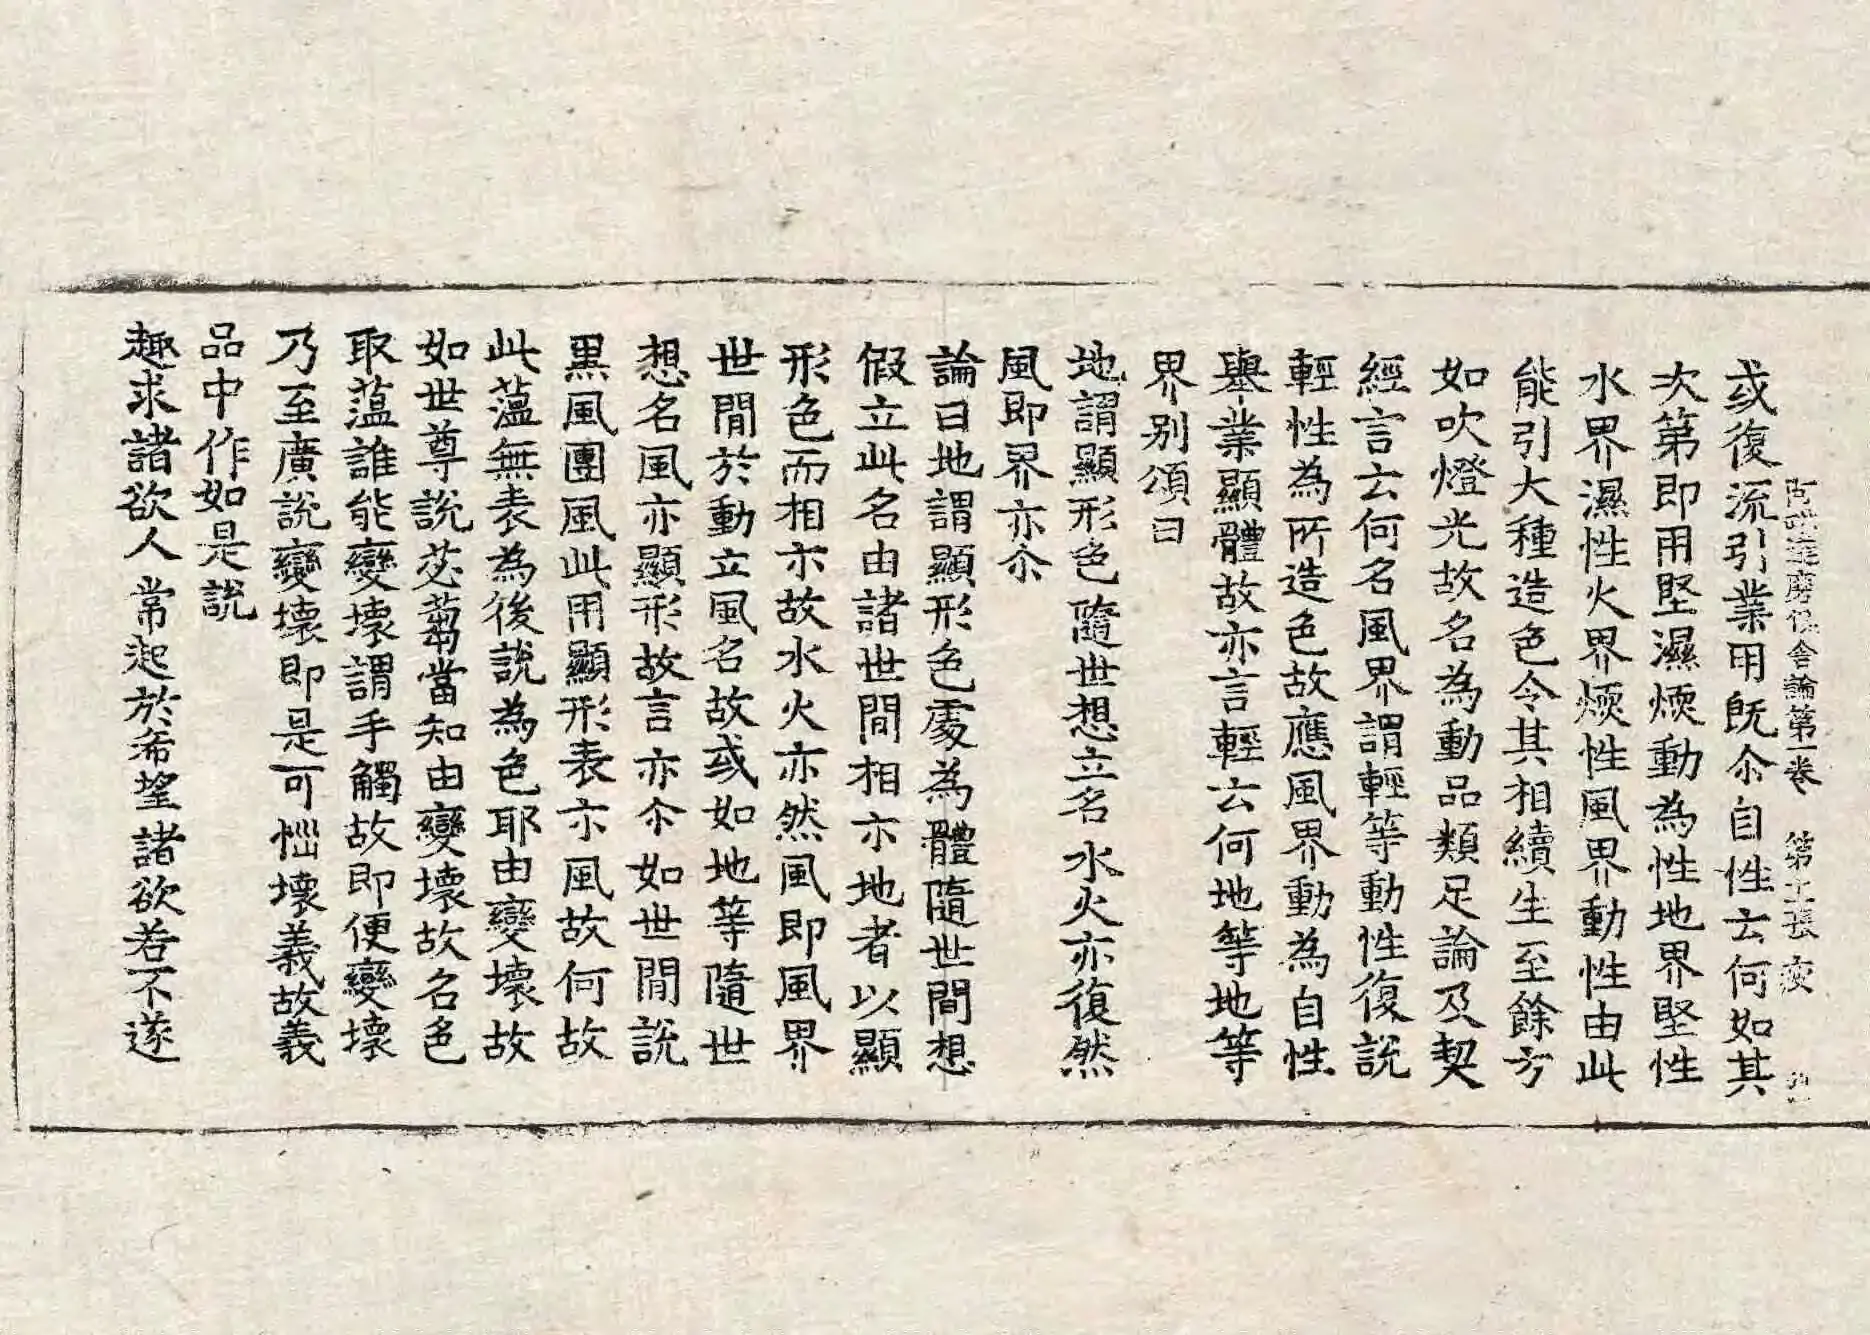 阿毗達磨俱舍論第一卷 第張
或復流引業用旣尒自性云何如其
次第即用堅濕煗動為性地界堅性
水界濕性火界煗性風界動性由此
能引大種造色令其相續生至餘方
如吹燈光故名為動品類足論及契
經言云何名風界謂輕等動性復說
輕性為所造色故應風界動為自性
舉業顯體故亦言輕云何地等地等
界別頌曰
地謂顯形色隨世想立名 水火亦復然
風即界亦尒
論曰地謂顯形色處為體隨世間想
假立此名由諸世間相示地者以顯
形色而相示故水火亦然風即風界
世間於動立風名故或如地等隨世
想名風亦顯形故言亦尒如世間說
黑風團風此用顯形表示風故何故
此薀無表為後說為色耶由變壞故
如世尊說苾蒭當知由變壞故名色
取薀誰能變壞謂手觸故即便變壞
乃至廣說變壞即是可惱壞義故義
品中作如是說
趣求諸欲人 常起於希望諸欲若不遂